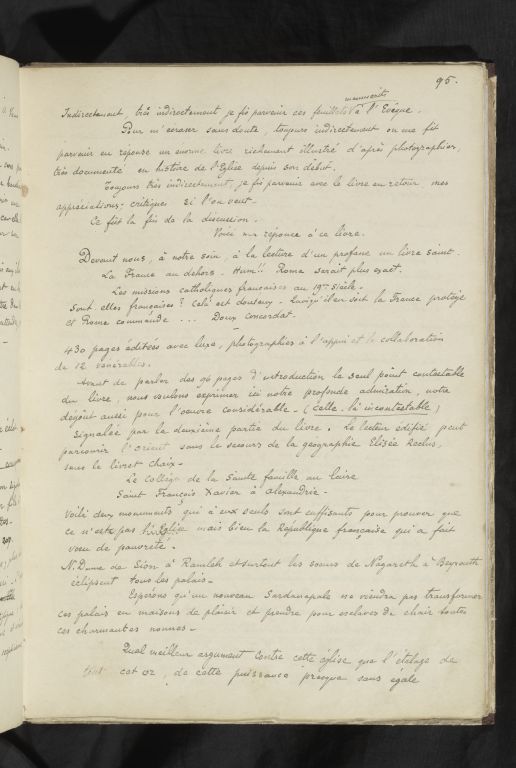 95.
manuscrits
Indirectement, très indirectement, je fis parvenir ces feuillets à l'Evêque.
Pour m'écraser sans doute, toujours indirectement on me fit
parvenir en réponse un énorme livre richement illustré d'après photographies,
très documenté en histoire de l'Eglise depuis son début.
Toujours très indirectement, je fis parvenir avec le livre en retour mes
appréciations - critiques si l'on veut -
Ce fût la fin de la discussion.
Voici ma réponse à ce livre.
Devant nous, à notre soin, à la lecture d'un profane un livre saint.
La France au dehors - Hum!! Rome serait plus exact.
Les missions catholiques françaises au 19me siècle.
Sont elles françaises? Cela est douteux - Quoiqu'il en soit la France protège
et Rome commande ... Doux concordat.
430 pages éditées avec luxe, photographies à l'appui et la collaboration
de 12 vénérables.
Avant de parler des 90 pages d'introduction le seul point contestable
du livre, nous voulons exprimer ici notre profonde admiration, notre
dégoût aussi pour l'oeuvre considérable - (celle-là incontestable)
Signalée par la deuxième partie du livre. Le lecteur édifié peut
parcourir l'orient sans le secours de la géographie Elisée Reclus,
sans le livret Chaix -
Le College de la Sainte famille au Caire
Saint François Xavier à Alexandrie -
Voilà deux monuments qui à eux seuls sont suffisants pour prouver que
ce n'est pas l'Eglise mais bien la République française qui a fait
voeu de pauvreté.
N. Dame de Sion à Ramleh et surtout les soeurs de Nazareth à Beyrouth
éclipsent tous les palais -
Espérons qu'un nouveau Sardanapale ne viendra pas transformer
ces palais en maisons de plaisir et prendre pour esclaves de chair toutes
ces charmantes nonnes -
Quel meilleur argument contre cette église que l'étalage de
tout cet or, de cette puissance presque sans égale